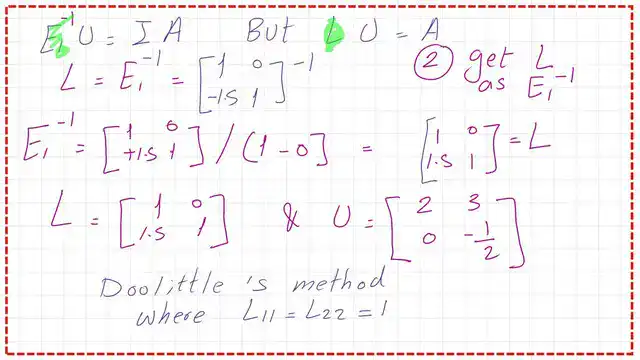 E₁⁻¹ U = I A But L U = A
L = E₁⁻¹ = [1 0; -1.5 1]⁻¹
② get L as E₁⁻¹
E₁⁻¹ = [1 0; +1.5 1] / (1-0] = [1 0; 1.5 1] = L
L = [1 0; 1.5 1] & U = [2 3; 0 -1/2]
Doolittle's method
where L₁₁ = L₂₂ = 1